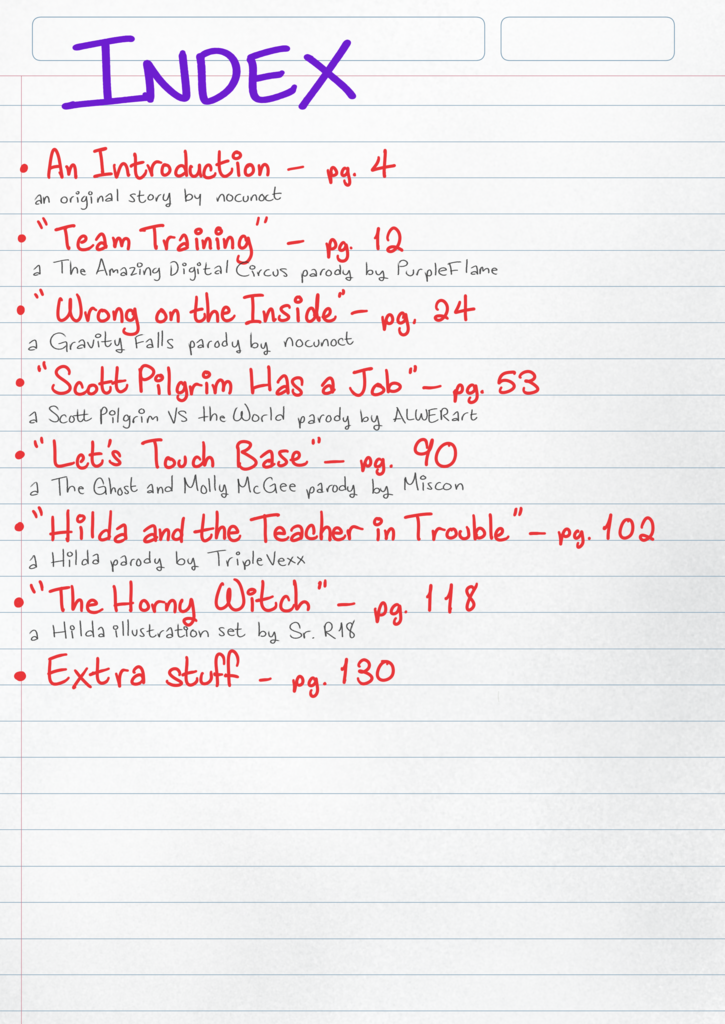 INDEX
• An Introduction – pg. 4
an original story by nocunoct
• "Team Training" – pg. 12
a The Amazing Digital Circus parody by PurpleFlame
• "Wrong on the Inside" – pg. 24
a Gravity Falls parody by nocunoct
• "Scott Pilgrim Has a Job" – pg. 53
a Scott Pilgrim VS the World parody by ALWERart
• "Let's Touch Base" – pg. 90
a The Ghost and Molly McGee parody by Miscon
• "Hilda and the Teacher in Trouble" – pg. 102
a Hilda parody by TripleVexx
• "The Horny Witch" – pg. 118
a Hilda illustration set by Sr. R18
• Extra stuff – pg. 130